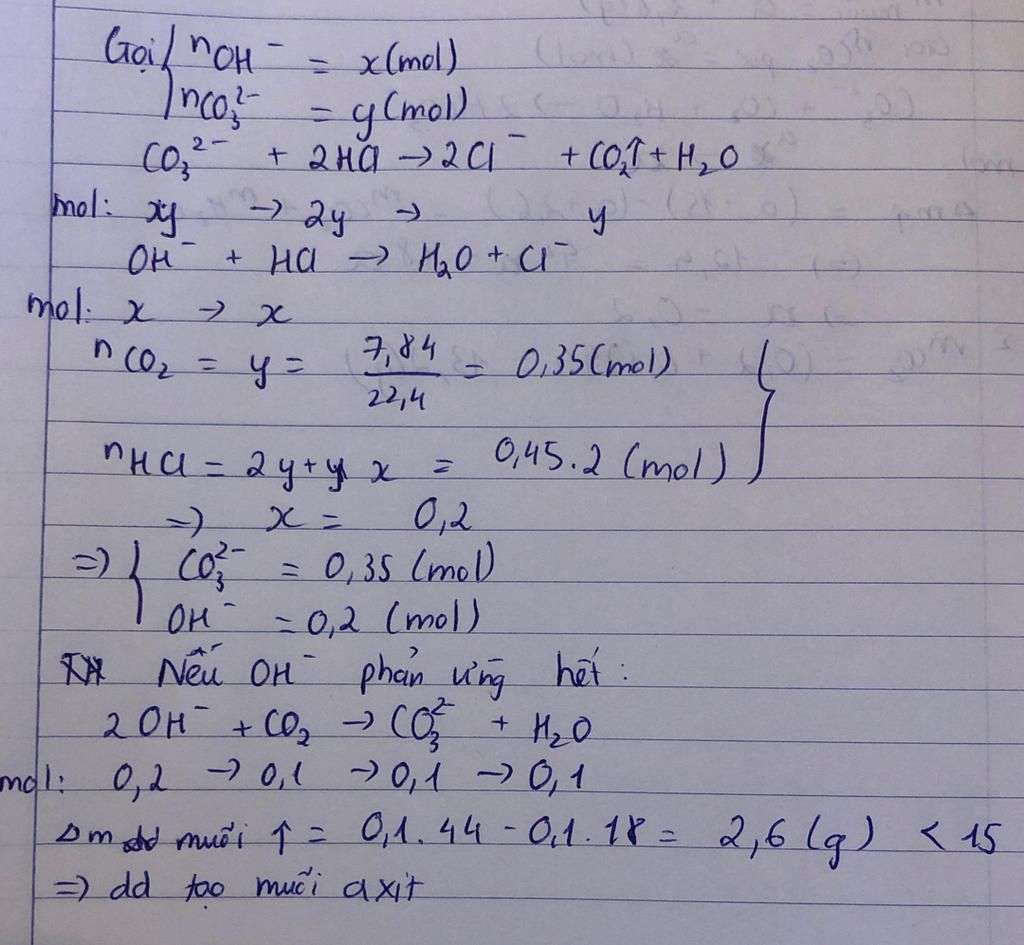 Gọi { nOH⁻ = x(mol)
nCO₃²⁻ = y(mol)
CO₃²⁻ + 2HCl → 2Cl⁻ + CO₂↑ + H₂O
mol: y → 2y → y
OH⁻ + HCl → H₂O + Cl⁻
mol: x → x
nCO₂ = y = 7,84/22,4 = 0,35(mol) }
nHCl = 2y + x = 0,45.2 (mol)
=) x = 0,2
=) { CO₃²⁻ = 0,35 (mol)
OH⁻ = 0,2 (mol)
Nếu OH⁻ phản ứng hết:
2OH⁻ + CO₂ → CO₃²⁻ + H₂O
mol: 0,2 → 0,1 → 0,1 → 0,1
Δm muối ↑ = 0,1.44 - 0,1.18 = 2,6 (g) < 15
=) dd tạo muối axit